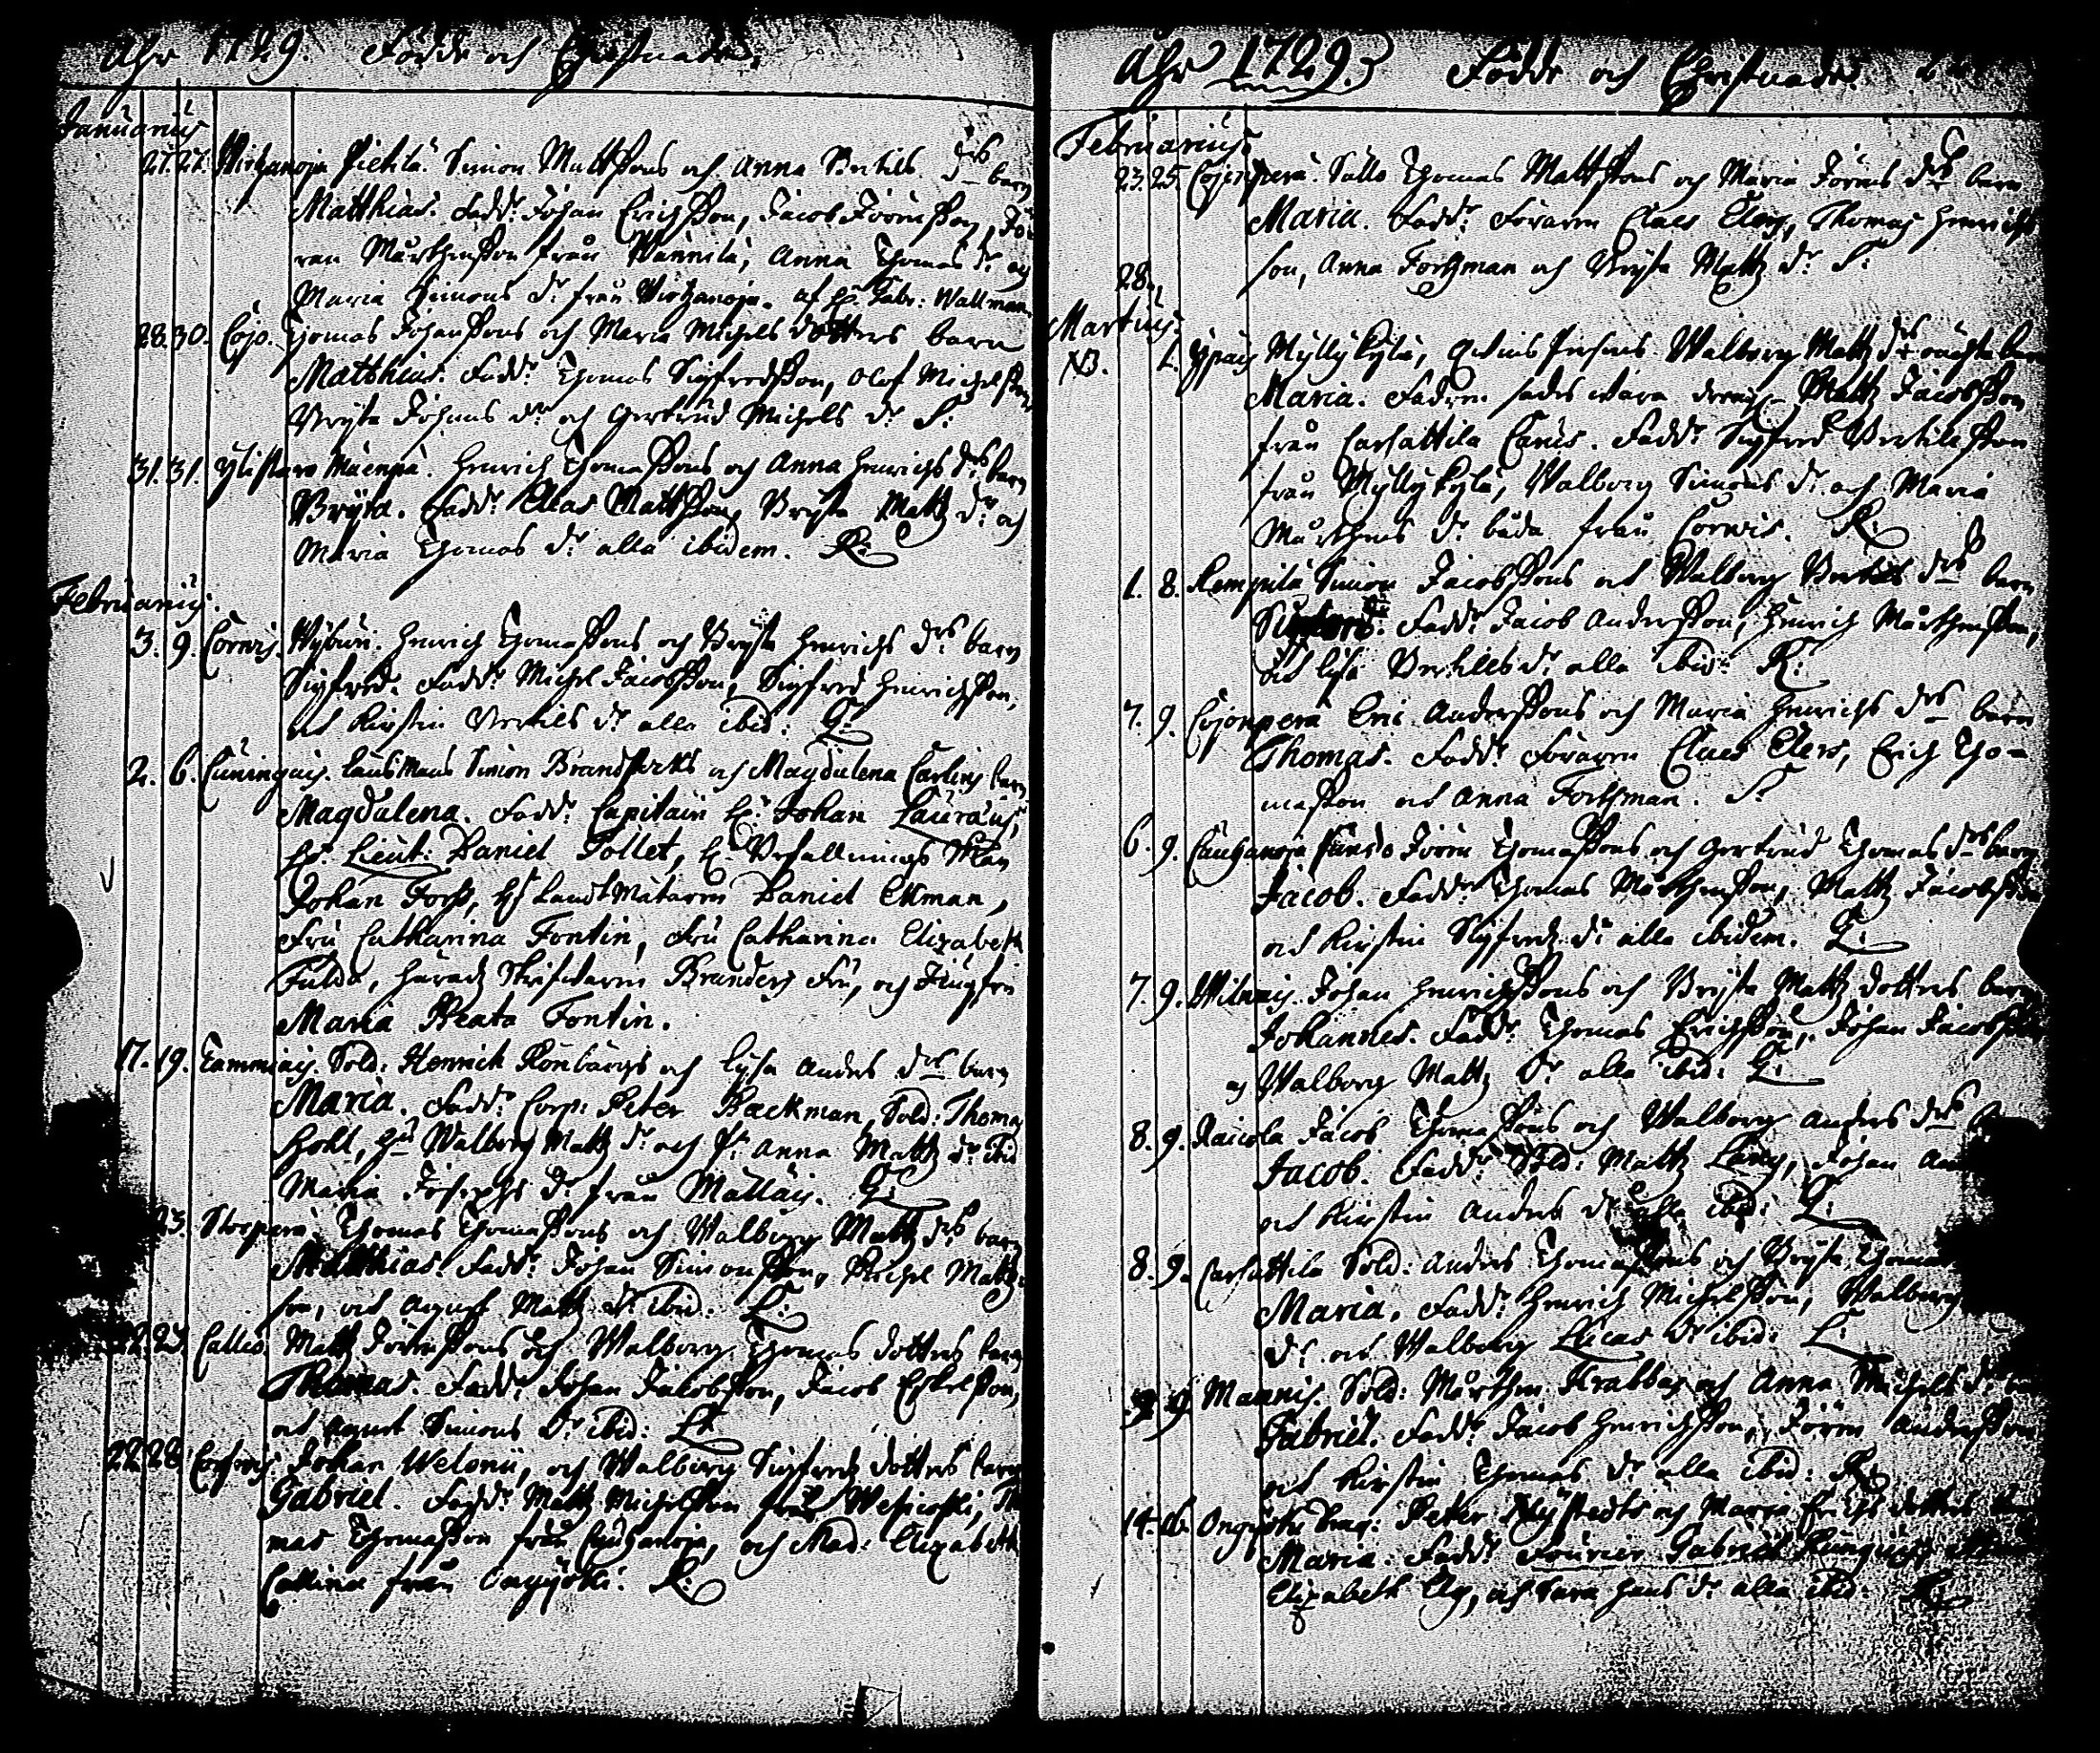 Åhr 1729. Födde och Christnade.
Januarius
27. 27. Wirhanoja Pietilä. Simon Mattssons och Anna Bertils drs barn
Matthias. Fadd: Johan Erichsson, Jacob Jöransson, Jö-
ran Mårthensson från Wännilä, Anna Thomas dr och
Maria Simons dr från Wirhanoja. af H. Gabr: Wallman.
28. 30. Cojo. Thomas Johanssons och Maria Michels dotters barn
Matthias. Fadd: Thomas Sigfredsson, Olof Michelsson,
Brijta Johans dr och Gertrud Michels dr. S:
31. 31. Ylistaro Mäenpä. Henrich Thomassons och Anna Henrichs drs barn
Brijta. Fadd: Elias Mattsson, Brijta Matts dr och
Maria Thomas dr alla ibidem. R:
Februarius.
3. 9. Corwis. Henrich Thomassons och Brijta Henrichs drs barn
Sigfred. Fadd: Michel Jacobsson, Sigfred Henrichsson,
och Kirstin Bertils dr alla ibid: L:
2. 6. Cuningais. Länsmans Simon Brandstedts och Magdalena Carlins barn
Magdalena. Fadd: Capitain H: Johan Lauræus,
Hr. Lieut: Daniel Tollet, H. Befallnings Man
Johan Forss, H. Landtmätaren Daniel Ekman,
Fru Catharina Fontin, Fru Catharina Elizabeth
Fulda, Häradz Skrifwaren Branders Fru, och Jungfru
Maria Beata Fontin.
17. 19. Tammiais. Sold: Henrich Rönbärgs och Lijsa Anders drs barn
Maria. Fadd: Corp: Peter Backman, Sold: Thomas
Holt, Hu Walborg Matts dr och P. Anna Matts dr ibid
Maria Josephs dr från Mälläis. L:
23. Storperä. Thomas Thomassons och Walborg Matts drs barn
Matthias. Fadd: Johan Simonsson, Michel Matts-
son, och Agnes Matts dr ibid: L:
22. 23. Callio. Matts Jöranssons och Walborg Thomas dotters barn
Thomas. Fadd: Johan Jacobsson, Jacob Eskelsson,
och Agnet Simons dr ibid: L:
22. 28. Johan Welonii, och Walborg Sigfreds dotters barn
Gabriel. Fadd: Matts Michelsson från Wesicoski, Tho
mas Thomasson från Cauhanoja, och Mad: Elizabeth
Callina från Ongyöki. R:
Åhr 1729. Födde och Christnade.
Februarius
23. 25. Cojonperä. Sallo Thomas Mattssons och Maria Jörans drs barn
Maria. Fadd: Föraren Claes Elers, Thomas Henrichs
son, Anna Forthman och Brijta Matts dr. S:
28.
Martius.
NB. 1. Ypäis Myllykylä, Qwins Persons Walborg Matts drs oächta barn
Maria. Fadren sades wara drengen Matts Jacobsson
från Carhattila Carus. Fadd: Sigfred Bertilsson
från Myllykylä, Walborg Simons dr och Maria
Mårthens dr båda från Corwis. R:
1. 8. Rempilä Simon Jacobssons och Walborg Bertils drs barn
Fadd: Jacob Andersson, Henrich Mårthensson,
och Lisa Bertils dr alla ibid: R:
7. 9. Cojonperä Eric Anderssons och Maria Henrichs drs barn
Thomas. Fadd: Föraren Claes Elers, Erich Tho-
masson och Anna Forthman. S:
6. 9. Cauhanoja Jöran Thomassons och Gertrud Thomas drs barn
Jacob. Fadd: Thomas Mårthensson, Matts Jacobsson
och Kirstin Sigfreds dr alla ibidem. L:
7. 9. Johan Henrichssons och Brijta Matts dotters barn
Johannes. Fadd: Thomas Erichsson, Johan Jacobsson
och Walborg Matts dr alla ibid: L:
8. 9. Raicola Jacob Thomassons och Walborg Anders drs
Jacob. Fadd: Sold: Matts Lång, Johan
och Kirstin Anders dr alla ibid: L:
8. 9. Carhattila Sold: Anders Thomassons och Brijta Thomas
Maria. Fadd: Henrich Michelsson, Walborg
dr och Walborg Lucas dr ibid: L:
9 Mannis. Sold: Mårthen Krabbes och Anna Michels drs
Gabriel. Fadd: Jacob Henrichsson, Jöran Andersson
och Kirstin Thomas dr alla ibid: R:
14. 16. Ongyöki Peter och Maria Erichs dotters
Maria. Fadd: Fourier Gabriel
Elizabeth Elg, och Sara Hans dr alla ibid: R: